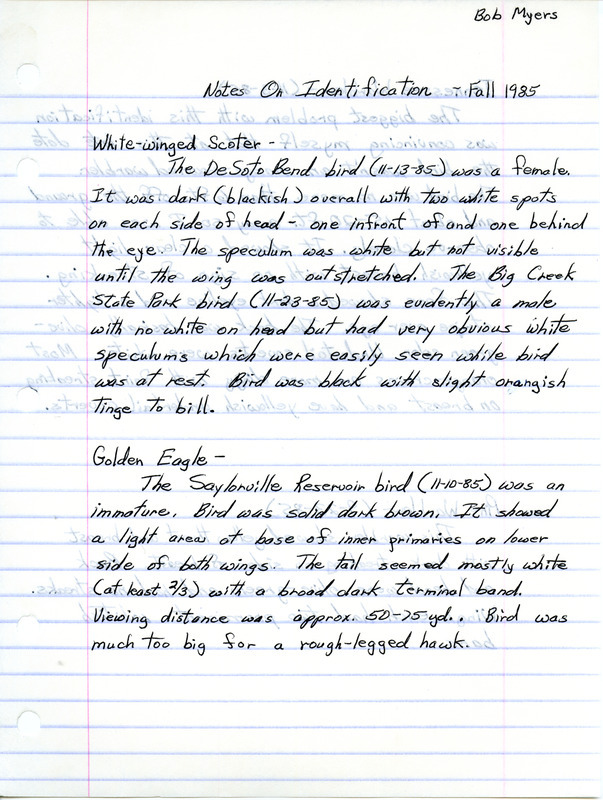 Bob Myers
Notes On Identification - Fall 1985
White-winged Scoter -
The DeSoto Bend bird (11-13-85) was a female.
It was dark (blackish) overall with two white spots
on each side of head - one infront of and one behind
the eye. The speculum was white but not visible
until the wing was outstretched. The Big Creek
State Park bird (11-23-85) was evidently a male
with no white on head but had very obvious white
speculums which were easily seen while bird
was at rest. Bird was black with slight orangish
tinge to bill.
Golden Eagle -
The Saylorville Reservoir bird (11-10-85) was an
immature. Bird was solid dark brown. It showed
a light area at base of inner primaries on lower
side of both wings. The tail seemed mostly white
(at least 2/3) with a broad dark terminal band.
Viewing distance was approx. 50-75 yd.. Bird was
much too big for a rough-legged hawk.